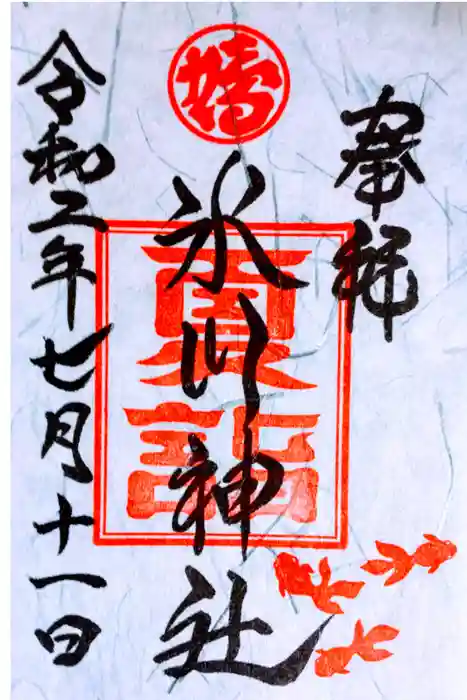 奉拝
氷川神社
夏詣
令和二年七月十一日